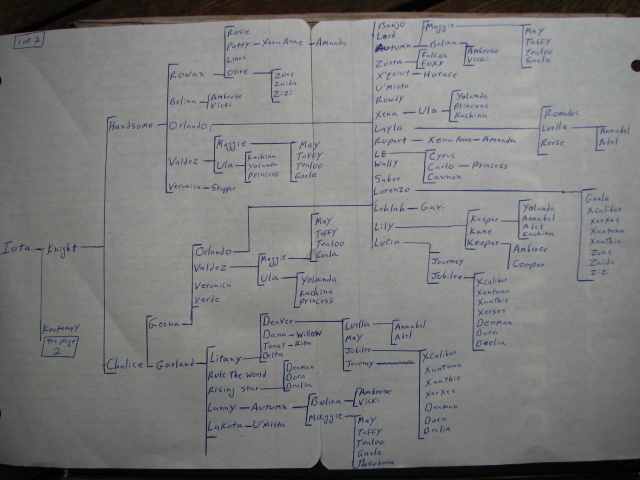 1 of 2
Rosie
Patty - Xena Anne - Amanda
Linus
Olive
Zues
Zaida
Zizi
Rowan
Belina - Ambrose
Vicki
Handsome
Orlando
Valdez
Maggie
Ula
Kachina
Yolanda
Princess
May
Taffy
Teuloo
Gaela
Veronica - Stopper
Banjo
Lord
Autumn
Maggie
May
Taffy
Teuloo
Gaela
Belina
Ambrose
Vicki
Zorra
Falcon
Foxy
X'Quisit - Horace
U'Mista
Rowdy
Xena - Ula
Yolanda
Princess
Kachina
Layla
Romulus
Luella
Reese
Annabel
Adel
Rupert - Xena Anne - Amanda
LE
Wally
Cyrus
Carlo - Princess
Saber
Lorenzo
Gaela
Xcalibur
Xerxes
Xantana
Xanthie
Zues
Zaida
Zizi
Lahlah - Gavi
Lily
Kaspar
Kane
Keeper
Yolanda
Annabel
Adel
Kachina
Ambrose
Cooper
Lucia
Journey
Jubilee
Xcalibur
Xantana
Xanthie
Xerxes
Denman
Dora
Deelia
Iota - Knight
Kootenay
see page
2
Chalice
Geena
Orlando
Valdez
Maggie
May
Taffy
Teuloo
Gaela
Ula
Yolanda
Kachina
Princess
Veronica
Verde
Garland
Litany
Denver
Luella
Annabel
Adel
May
Jubilee
Journey
Xcalibur
Xantana
Xanthie
Xerxes
Denman
Dora
Deelia
Dana - Willow
Tansy - Rita
Delta
Rule The World
Rising Star
Denman
Dora
Deelia
Lanny - Autumn
Belina
Ambrose
Vicki
Maggie
May
Taffy
Teuloo
Gaela
Theodora
Lakota - U'Mista